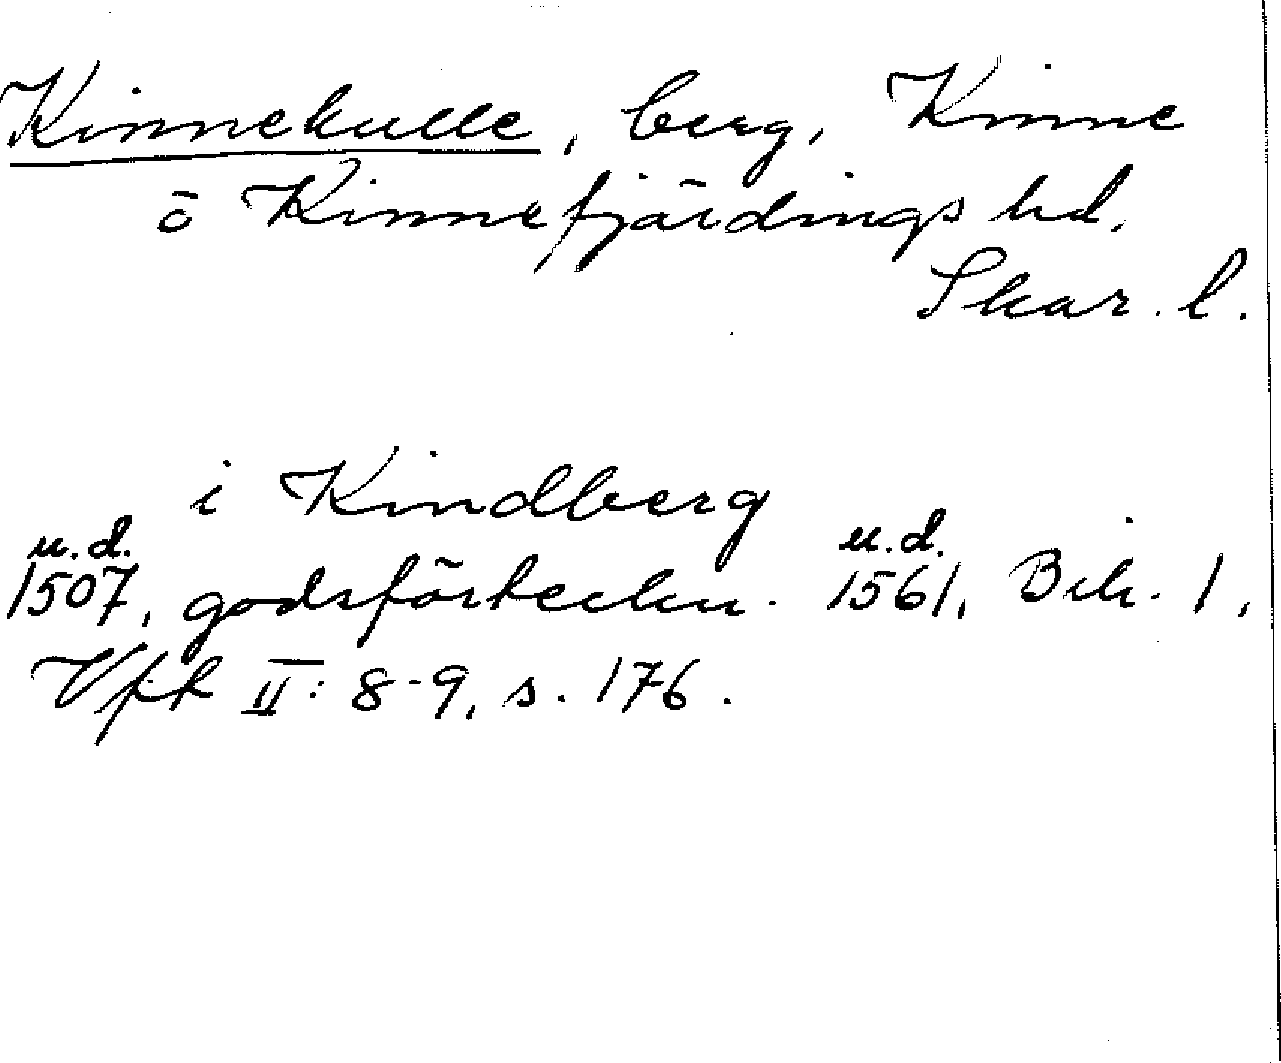 Kinnekulle, berg, Kinne
o Kinnefjärdings hd.
Skar. l.
i Kindberg
u.d. u.d.
1507, godsförteckn. 1561, Bih. 1,
Vfk II: 8-9, s. 176.